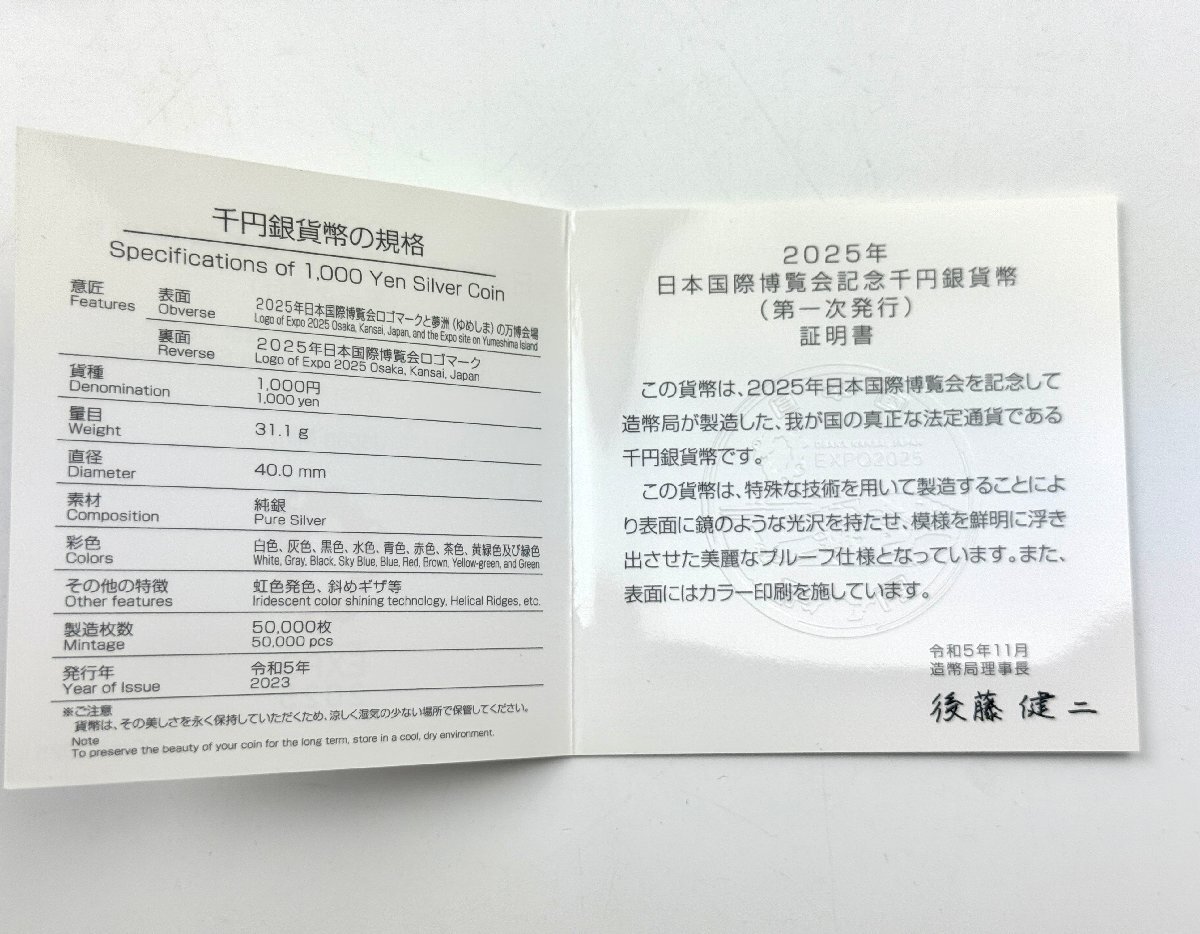 千円銀貨幣の規格
Specifications of 1,000 Yen Silver Coin
意匠
Features
表面
Obverse
2025年日本国際博覧会ロゴマークと夢洲(ゆめしま)の万博会場
Logo of Expo 2025 Osaka, Kansai, Japan, and the Expo site on Yumeshima Island
裏面
Reverse
2025年日本国際博覧会ロゴマーク
Logo of Expo 2025 Osaka, Kansai, Japan
貨種
Denomination
1,000円
1,000 yen
量目
Weight
31.1 g
直径
Diameter
40.0 mm
素材
Composition
純銀
Pure Silver
彩色
Colors
白色、灰色、黒色、水色、青色、赤色、茶色、黄緑色及び緑色
White, Gray, Black, Sky Blue, Blue, Red, Brown, Yellow-green, and Green
その他の特徴
Other features
虹色発色、斜めギザ等
Iridescent color shining technology, Helical Ridges, etc.
製造枚数
Mintage
50,000枚
50,000 pcs
発行年
Year of Issue
令和5年
2023
※ご注意
貨幣は、その美しさを永く保持していただくため、涼しく湿気の少ない場所で保管してください。
Note
To preserve the beauty of your coin for the long term, store in a cool, dry environment.
2025年
日本国際博覧会記念千円銀貨幣
(第一次発行)
証明書
この貨幣は、2025年日本国際博覧会を記念して
造幣局が製造した、我が国の真正な法定通貨である
千円銀貨幣です。
この貨幣は、特殊な技術を用いて製造することによ
り表面に鏡のような光沢を持たせ、模様を鮮明に浮き
出させた美麗なプルーフ仕様となっています。また、
表面にはカラー印刷を施しています。
EXPO2025
令和5年11月
造幣局理事長
後藤健二